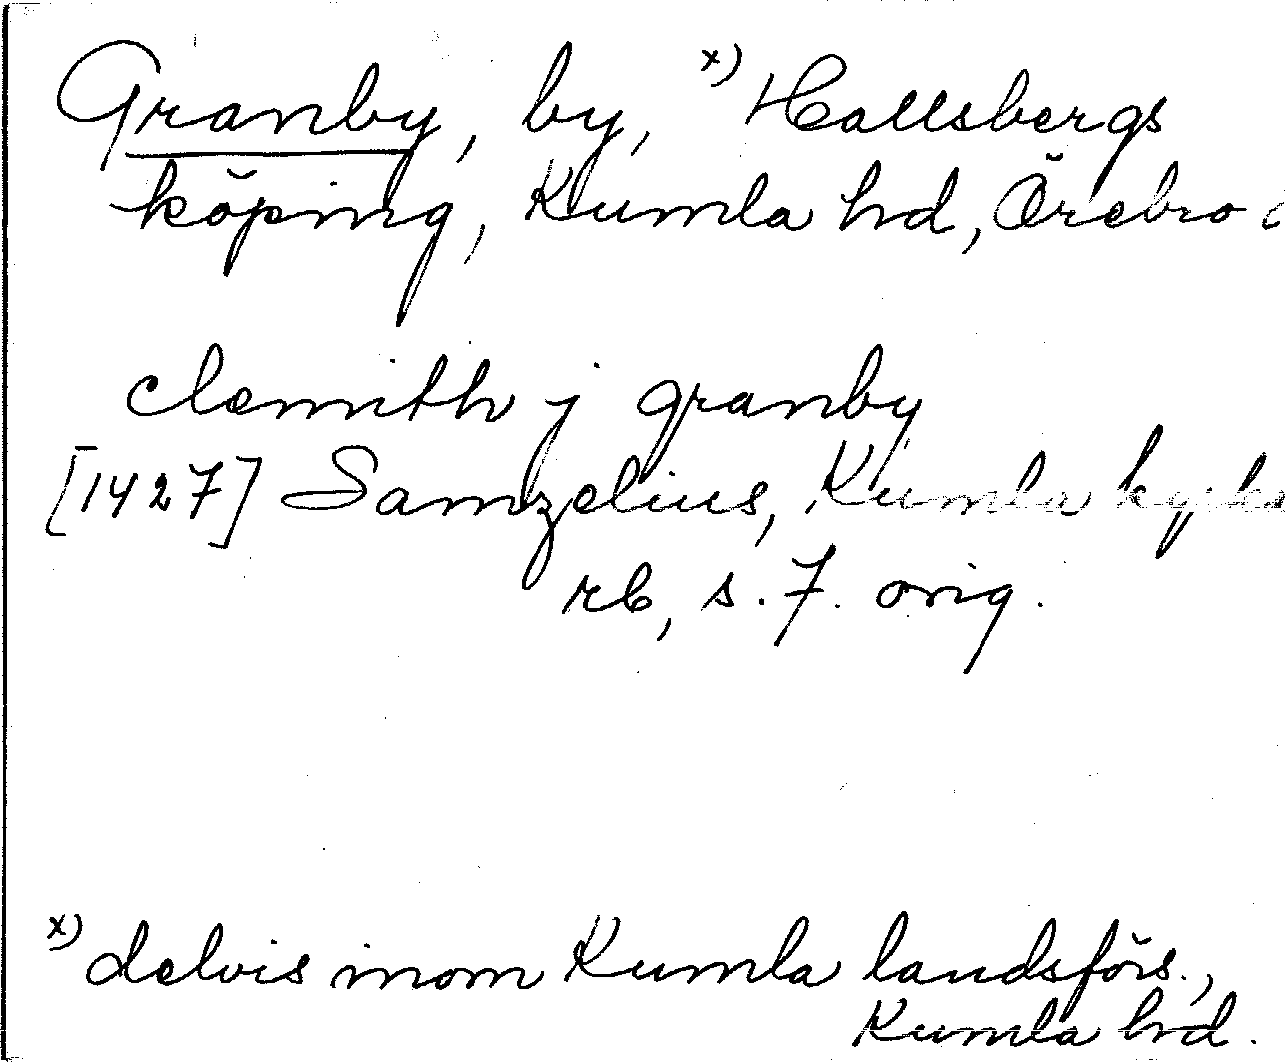 Granby, by, x) Hallsbergs
köping, Kumla hd, Örebro
clemith j granby
[1427] Samzelius, Kumla kyrko
rb, s. 7. orig.
x) delvis inom Kumla landsförs.,
Kumla hd.